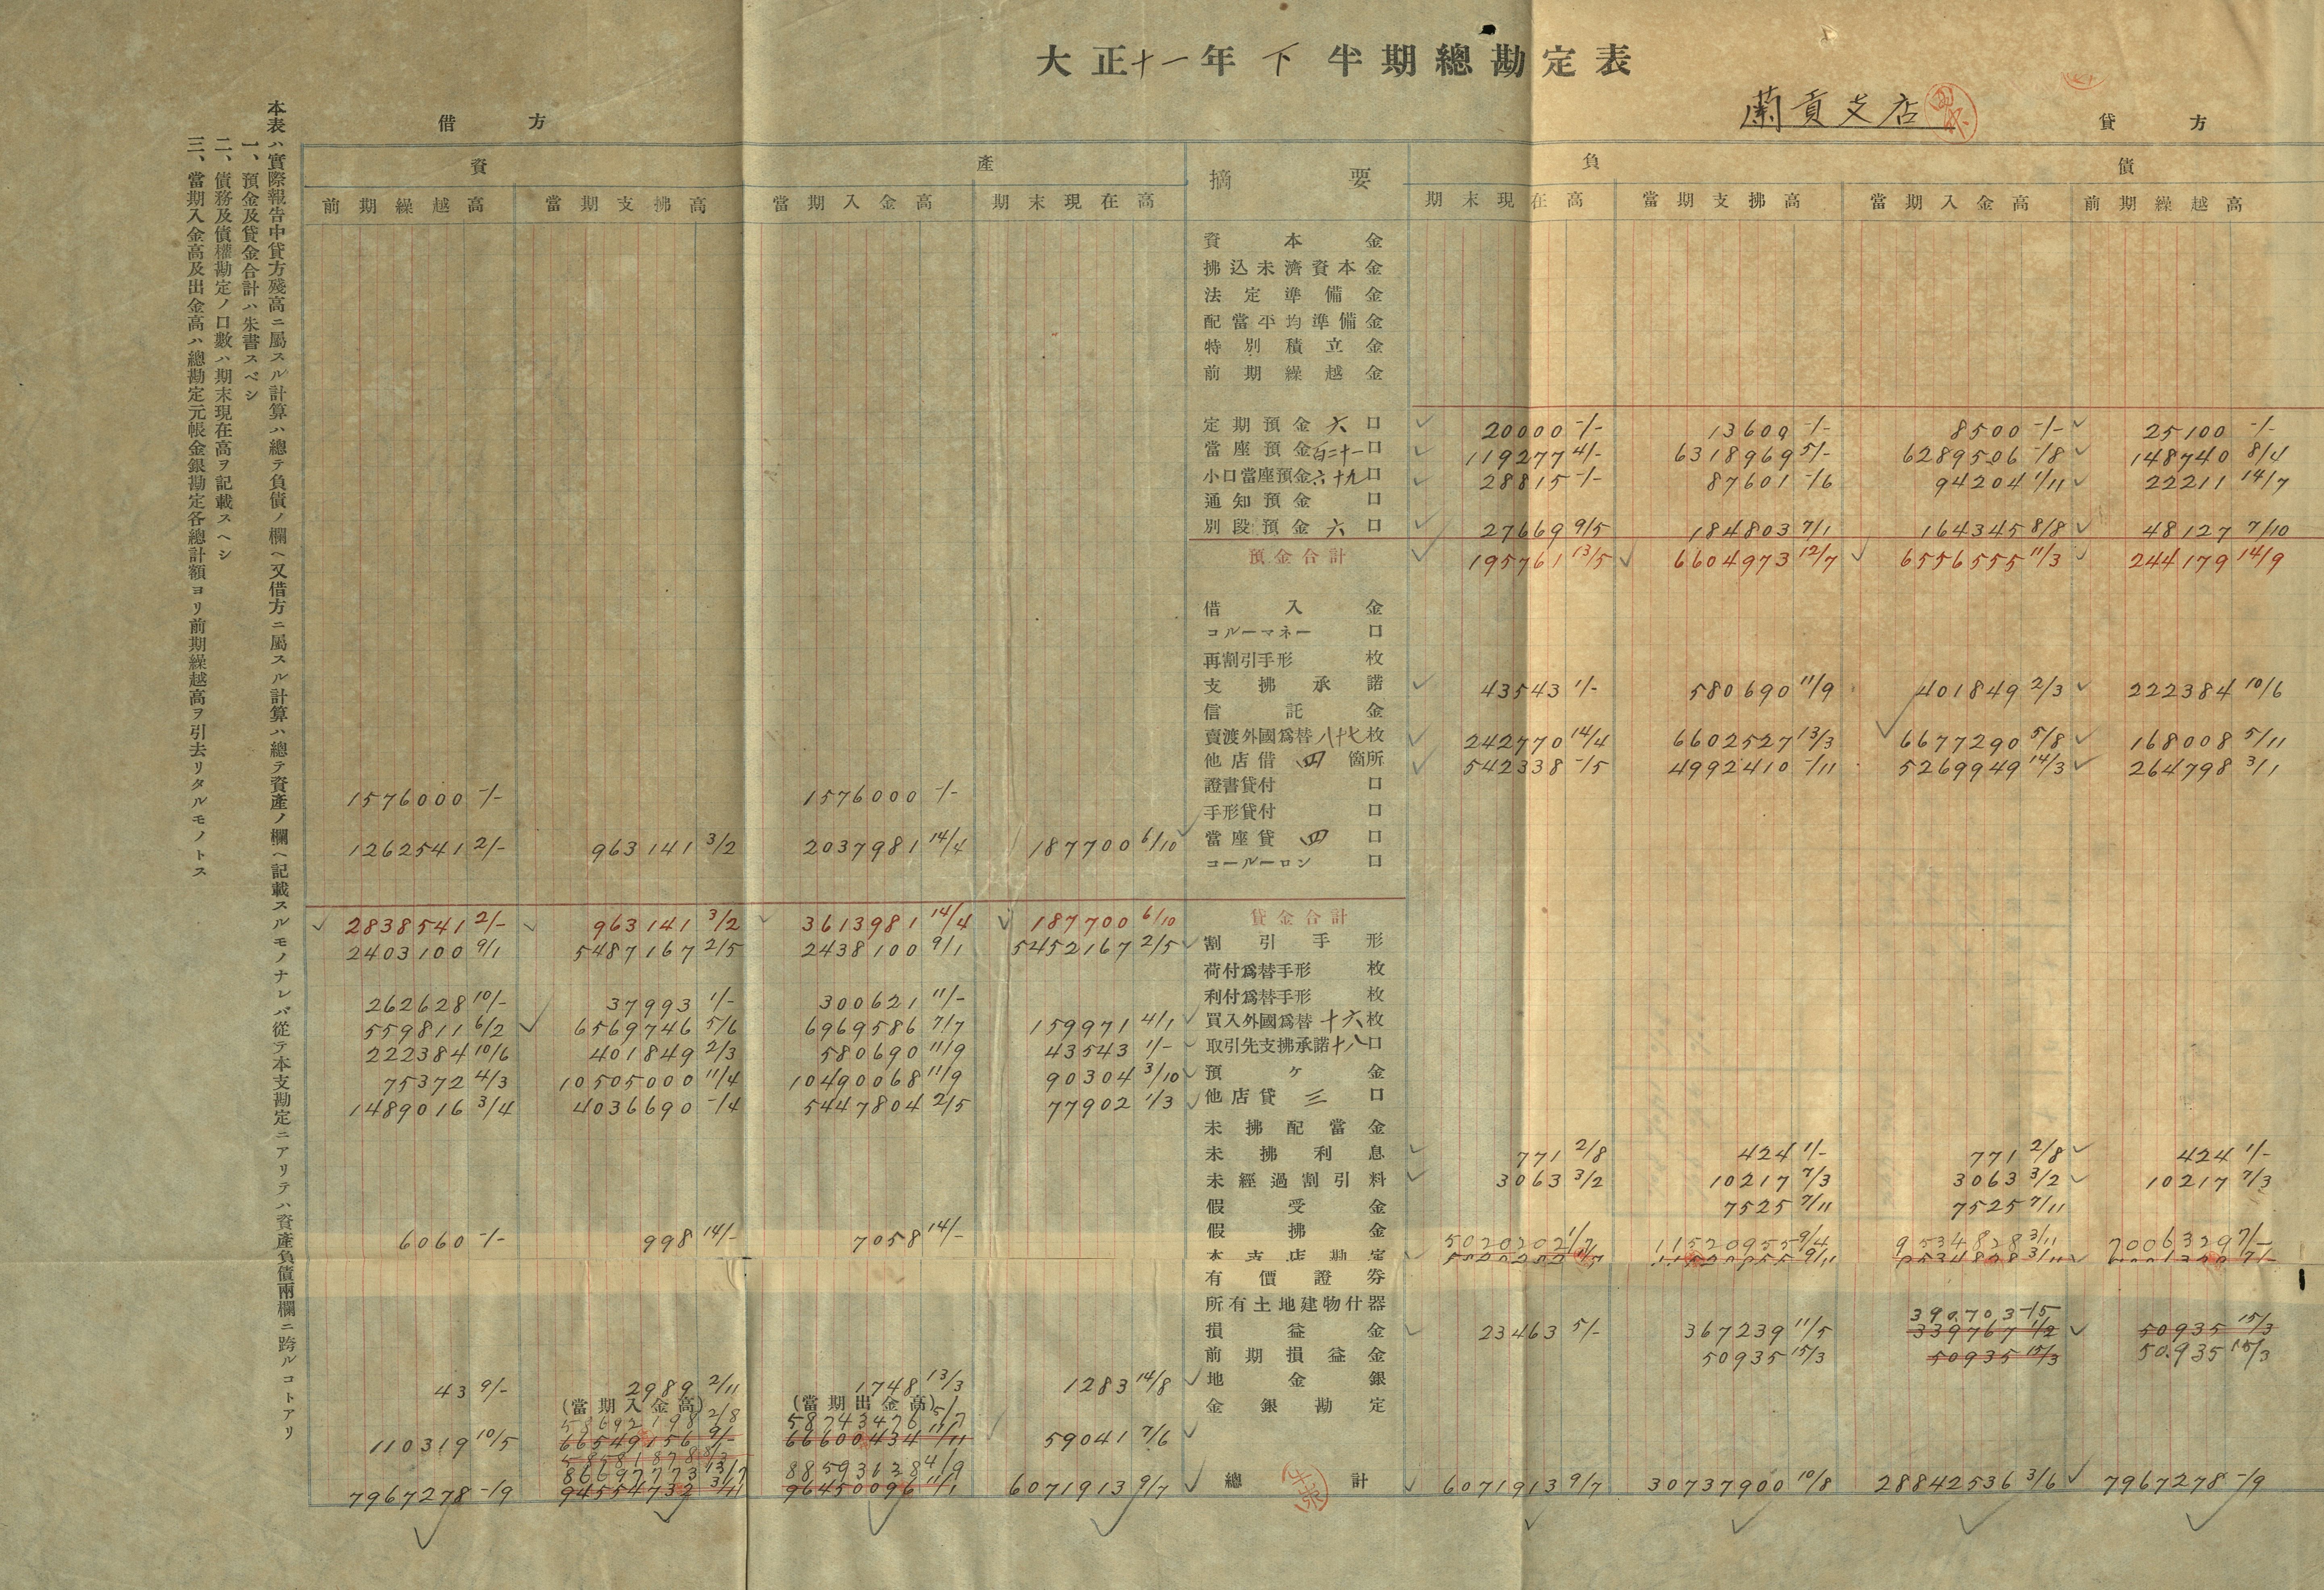 大正十一年下半期總勘定表
蘭貢支店
借方 貸方
資產 摘要 負債
前期繰越高 當期支拂高 當期入金高 期末現在高 期末現在高 當期支拂高 當期入金高 前期繰越高
資本金
拂込未濟資本金
法定準備金
配當平均準備金
特別積立金
前期繰越金
定期預金六口 20000 -/- 13600 -/- 8500 -/- 25100 -/-
當座預金百二十一口 119277 4/- 6318969 5/- 6289506 -/8 148740 8/4
小口當座預金六十九口 28815 -/- 87601 -/6 94204 1/11 22211 14/7
通知預金口
別段預金六口 27669 9/5 184803 7/1 164345 8/8 48127 7/10
預金合計 195761 13/5 6604973 12/7 6556555 11/3 244179 14/9
借入金
コルーマネー口
再割引手形枚
支拂承諾 43543 1/- 580690 11/9 401849 2/3 222384 10/6
信託金
賣渡外國爲替八十七枚 242770 14/4 6602527 13/3 6677290 5/8 168008 5/11
他店借四箇所 542338 -/5 4992410 -/11 5269949 14/3 264798 3/1
證書貸付口
1576000 -/- 1576000 -/- 手形貸付口
1262541 2/- 963141 3/2 2037981 14/4 187700 6/10 當座貸四口
コールーロン口
2838541 2/- 963141 3/2 3613981 14/4 187700 6/10 貸金合計
2403100 9/1 5487167 2/5 2438100 9/1 5452167 2/5 割引手形
荷付爲替手形枚
262628 10/- 37993 1/- 300621 11/- 利付爲替手形枚
559811 6/2 6569746 5/6 6969586 7/7 159971 4/1 買入外國爲替十六枚
222384 10/6 401849 2/3 580690 11/9 43543 1/- 取引先支拂承諾十八口
75372 4/3 10505000 11/4 10490068 11/9 90304 3/10 預ケ金
1489016 3/4 4036690 -/4 5447804 2/5 77902 1/3 他店貸三口
未拂配當金
未拂利息 771 2/8 424 1/- 771 2/8 424 1/-
未經過割引料 3063 3/2 10217 7/3 3063 3/2 10217 7/3
假受金 7525 7/11 7525 7/11
6060 -/- 998 14/- 7058 14/- 假拂金
本支店勘定 5020202 1/7 11520955 9/4 9534828 3/11 7006329 7/-
有價證券
所有土地建物什器
390703 -/5
損益金 23463 5/- 367239 11/5 339767 1/2 50935 15/3
前期損益金 50935 15/3 50935 15/3 50935 15/3
43 9/- 2989 2/11 1748 13/3 1283 14/8 地金銀
(當期入金高) (當期出金高) 金銀勘定
58692198 2/8 58743476 5/7
110319 10/5 66549156 9/- 66600434 11/11 59041 7/6
86697773 13/7 88593138 4/9
7967278 -/9 94554732 3/11 96450096 11/1 6071913 9/7 總計 6071913 9/7 30737900 10/8 28842536 3/6 7967278 -/9
本表ハ實際報告中貸方殘高ニ屬スル計算ハ總テ負債ノ欄ヘ又借方ニ屬スル計算ハ總テ資產ノ欄ヘ記載スルモノナレバ從テ本支勘定ニアリテハ資產負債兩欄ニ跨ルコトアリ
一、預金及貸金合計ハ朱書スベシ
二、債務及債權勘定ノ口數ハ期末現在高ヲ記載スヘシ
三、當期入金高及出金高ハ總勘定元帳金銀勘定各總計額ヨリ前期繰越高ヲ引去リタルモノトス